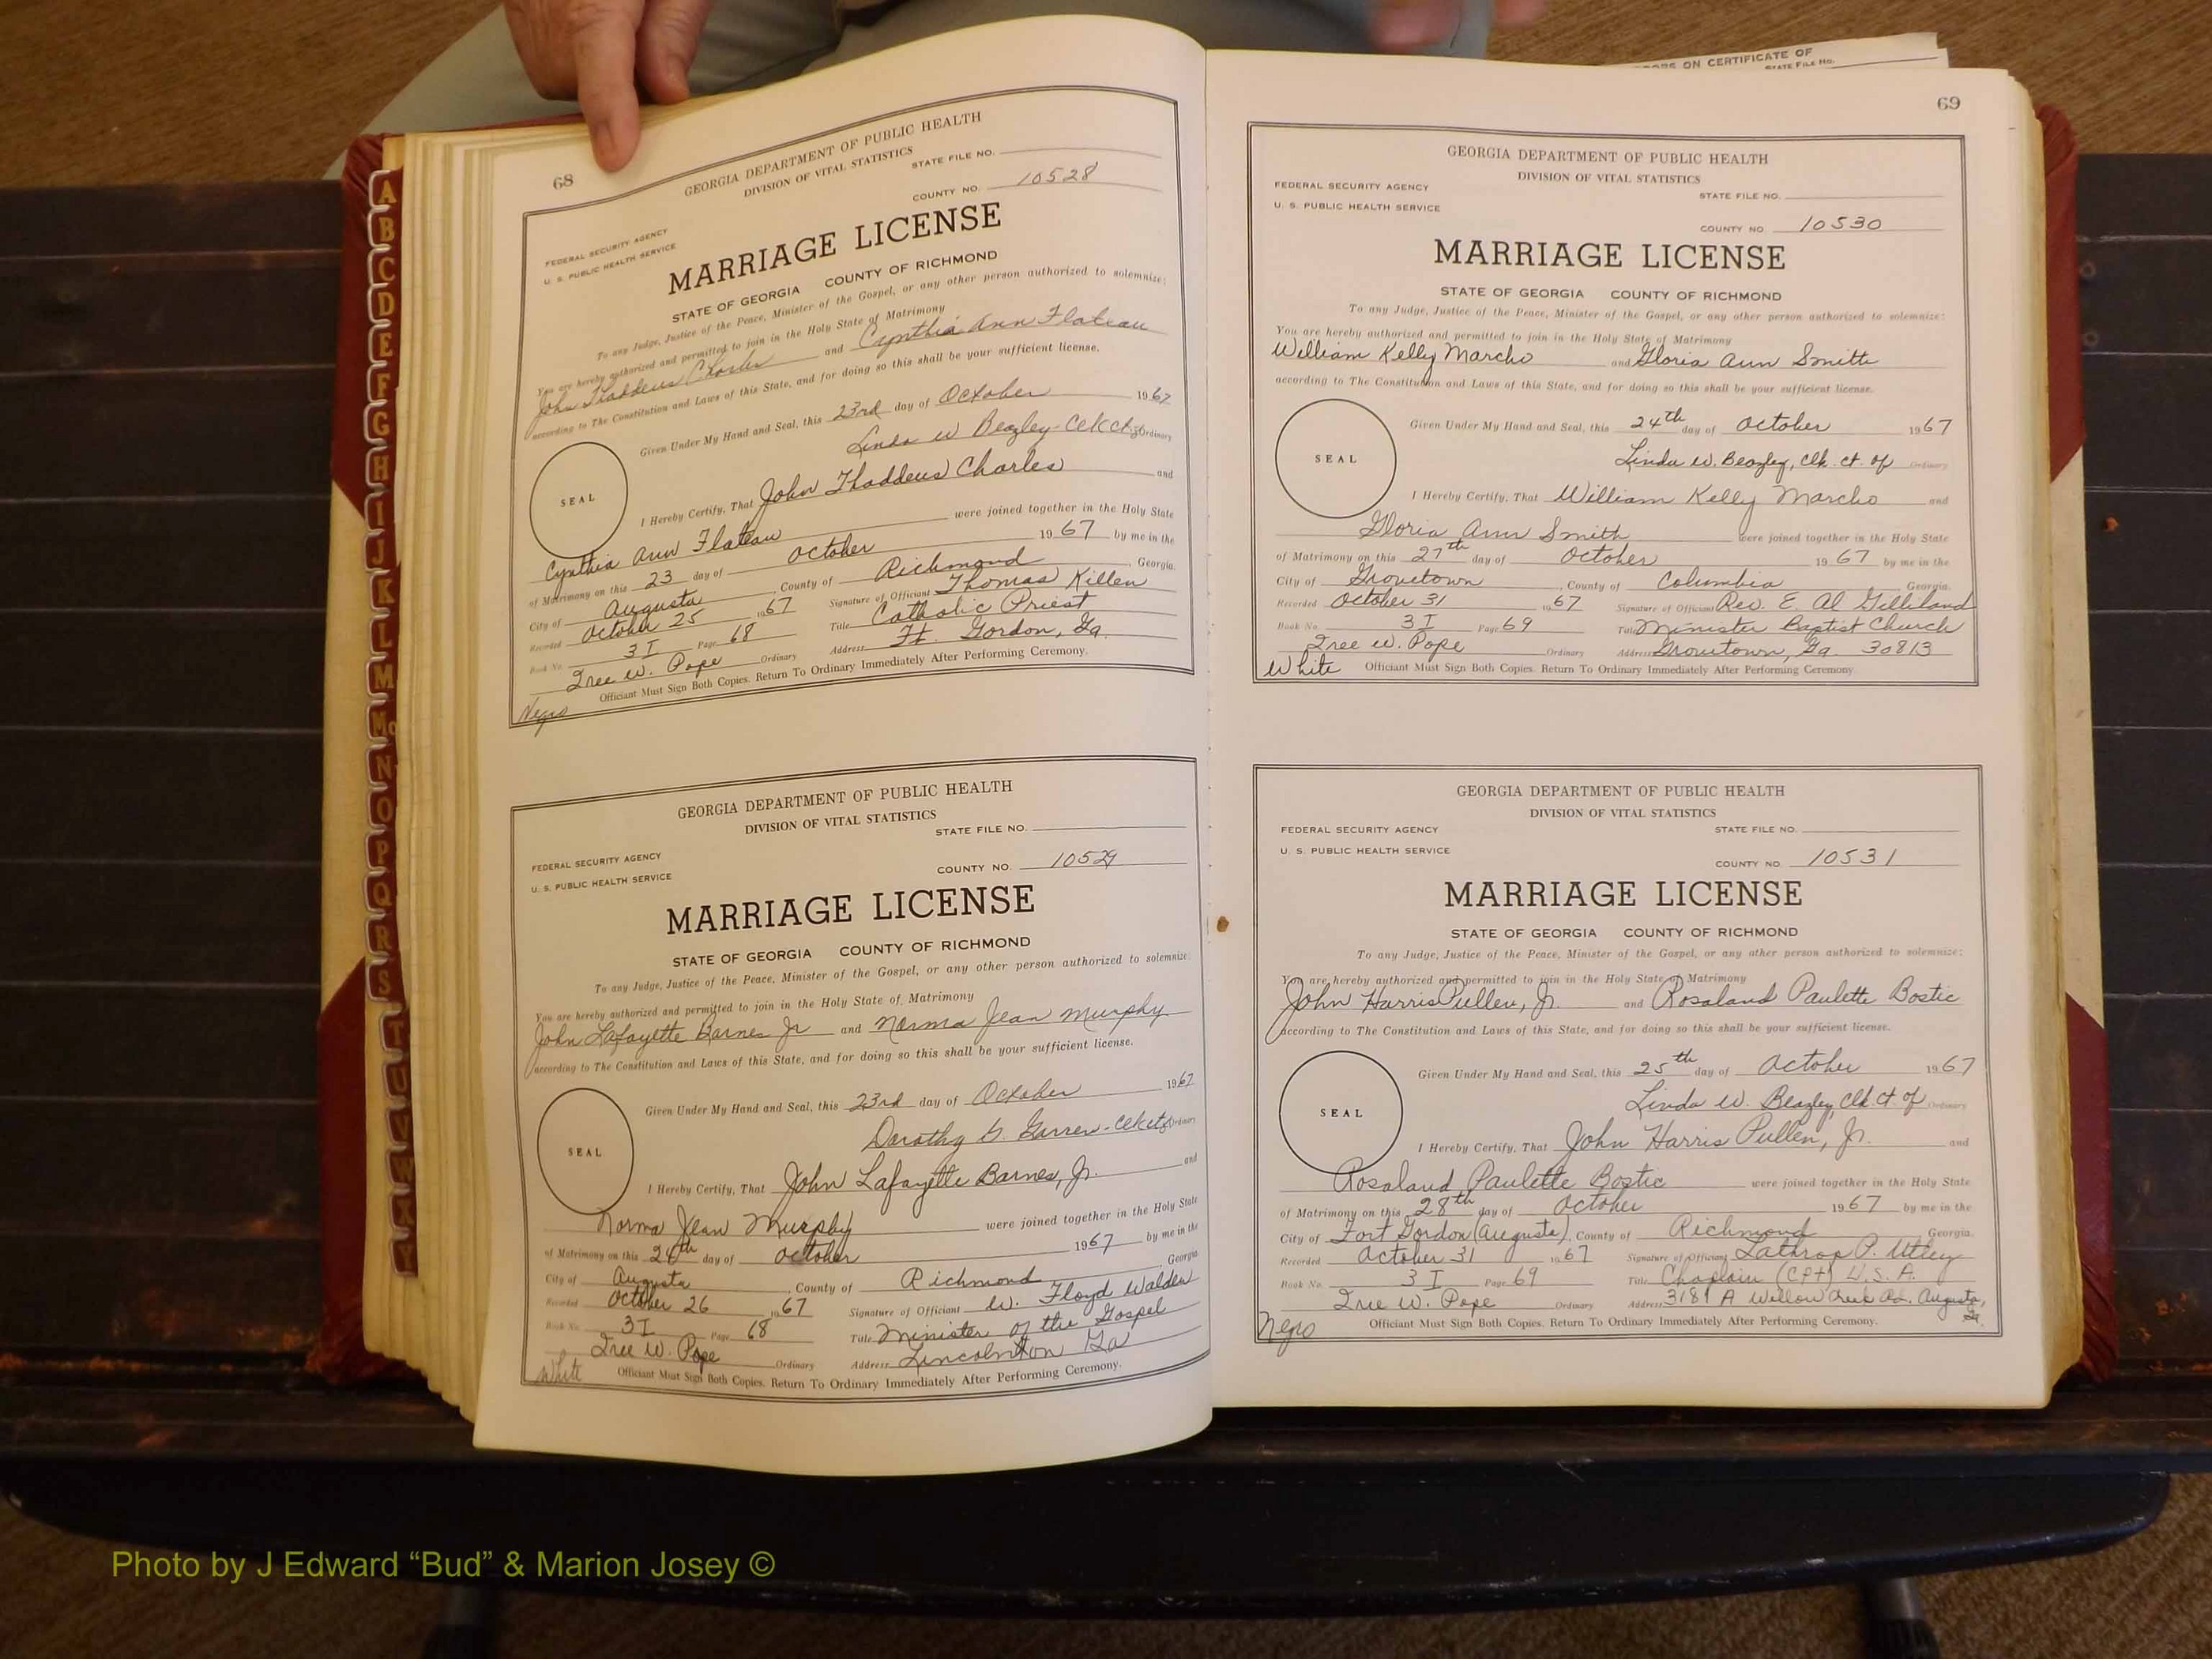 ON CERTIFICATE OF
STATE FILE NO.
A
B
C
D
E
F
G
H
I
J
K
L
M
Mc
N
O
P
Q
R
S
T
U
V
W
X
Y
68
GEORGIA DEPARTMENT OF PUBLIC HEALTH
DIVISION OF VITAL STATISTICS
STATE FILE NO.
COUNTY NO. 10528
FEDERAL SECURITY AGENCY
U. S. PUBLIC HEALTH SERVICE
MARRIAGE LICENSE
STATE OF GEORGIA COUNTY OF RICHMOND
To any Judge, Justice of the Peace, Minister of the Gospel, or any other person authorized to solemnize:
You are hereby authorized and permitted to join in the Holy State of Matrimony
John Thaddeus Charles and Cynthia Ann Flateau
according to The Constitution and Laws of this State, and for doing so this shall be your sufficient license.
Given Under My Hand and Seal, this 23rd day of October 1967
Linda W Beazley - Clk Ct of Ordinary
SEAL
I Hereby Certify, That John Thaddeus Charles and
Cynthia Ann Flateau were joined together in the Holy State
of Matrimony on this 23 day of October 1967 by me in the
City of Augusta, County of Richmond, Georgia.
Recorded October 25 1967 Signature of Officiant Thomas Killen
Book No. 3 I Page 68 Title Catholic Priest
Tree W. Pope Ordinary Address Ft. Gordon, Ga.
Officiant Must Sign Both Copies. Return To Ordinary Immediately After Performing Ceremony.
Negro
GEORGIA DEPARTMENT OF PUBLIC HEALTH
DIVISION OF VITAL STATISTICS
STATE FILE NO.
FEDERAL SECURITY AGENCY
U. S. PUBLIC HEALTH SERVICE
COUNTY NO. 10529
MARRIAGE LICENSE
STATE OF GEORGIA COUNTY OF RICHMOND
To any Judge, Justice of the Peace, Minister of the Gospel, or any other person authorized to solemnize:
You are hereby authorized and permitted to join in the Holy State of Matrimony
John Lafayette Barnes Jr and Norma Jean Murphy
according to The Constitution and Laws of this State, and for doing so this shall be your sufficient license.
Given Under My Hand and Seal, this 23rd day of October 1967
Dorothy G. - Clk Ct of Ordinary
SEAL
I Hereby Certify, That John Lafayette Barnes, Jr. and
Norma Jean Murphy were joined together in the Holy State
of Matrimony on this day of October 1967 by me in the
City of Augusta, County of Richmond, Georgia.
Recorded October 26 1967 Signature of Officiant W. Floyd Walden
Book No. 3 I Page 68 Title Minister of the Gospel
Tree W. Pope Ordinary Address Lincolnton Ga
White Officiant Must Sign Both Copies. Return To Ordinary Immediately After Performing Ceremony.
69
GEORGIA DEPARTMENT OF PUBLIC HEALTH
DIVISION OF VITAL STATISTICS
FEDERAL SECURITY AGENCY
STATE FILE NO.
U. S. PUBLIC HEALTH SERVICE
COUNTY NO. 10530
MARRIAGE LICENSE
STATE OF GEORGIA COUNTY OF RICHMOND
To any Judge, Justice of the Peace, Minister of the Gospel, or any other person authorized to solemnize:
You are hereby authorized and permitted to join in the Holy State of Matrimony
William Kelly Marcho and Gloria Ann Smith
according to The Constitution and Laws of this State, and for doing so this shall be your sufficient license.
Given Under My Hand and Seal, this 24th day of October 1967
Linda W. Beazley, Clk. Ct. of Ordinary
SEAL
I Hereby Certify, That William Kelly Marcho and
Gloria Ann Smith were joined together in the Holy State
of Matrimony on this 27th day of October 1967 by me in the
City of Grovetown, County of Columbia Georgia.
Recorded October 31 1967 Signature of Officiant Rev. E. Al Gilliland
Book No. 3 I Page 69 Title Minister Baptist Church
Tree W. Pope Ordinary Address Grovetown, Ga. 30813
White Officiant Must Sign Both Copies. Return To Ordinary Immediately After Performing Ceremony.
GEORGIA DEPARTMENT OF PUBLIC HEALTH
DIVISION OF VITAL STATISTICS
FEDERAL SECURITY AGENCY
STATE FILE NO.
U. S. PUBLIC HEALTH SERVICE
COUNTY NO. 10531
MARRIAGE LICENSE
STATE OF GEORGIA COUNTY OF RICHMOND
To any Judge, Justice of the Peace, Minister of the Gospel, or any other person authorized to solemnize:
You are hereby authorized and permitted to join in the Holy State of Matrimony
John Harris Pullen, Jr. and Rosaland Paulette Bostic
according to The Constitution and Laws of this State, and for doing so this shall be your sufficient license.
Given Under My Hand and Seal, this 25th day of October 1967
Linda W. Beazley, Clk. Ct. of Ordinary
SEAL
I Hereby Certify, That John Harris Pullen, Jr. and
Rosaland Paulette Bostic were joined together in the Holy State
of Matrimony on this 28th day of October 1967 by me in the
City of Fort Gordon (Augusta), County of Richmond Georgia.
Recorded October 31 1967 Signature of Officiant Lathrop P. Utley
Book No. 3 I Page 69 Title Chaplain (CPT) U.S.A.
Tree W. Pope Ordinary Address 3181 A Willow Creek Rd. Augusta, Ga.
Negro Officiant Must Sign Both Copies. Return To Ordinary Immediately After Performing Ceremony.
Photo by J Edward “Bud” & Marion Josey ©